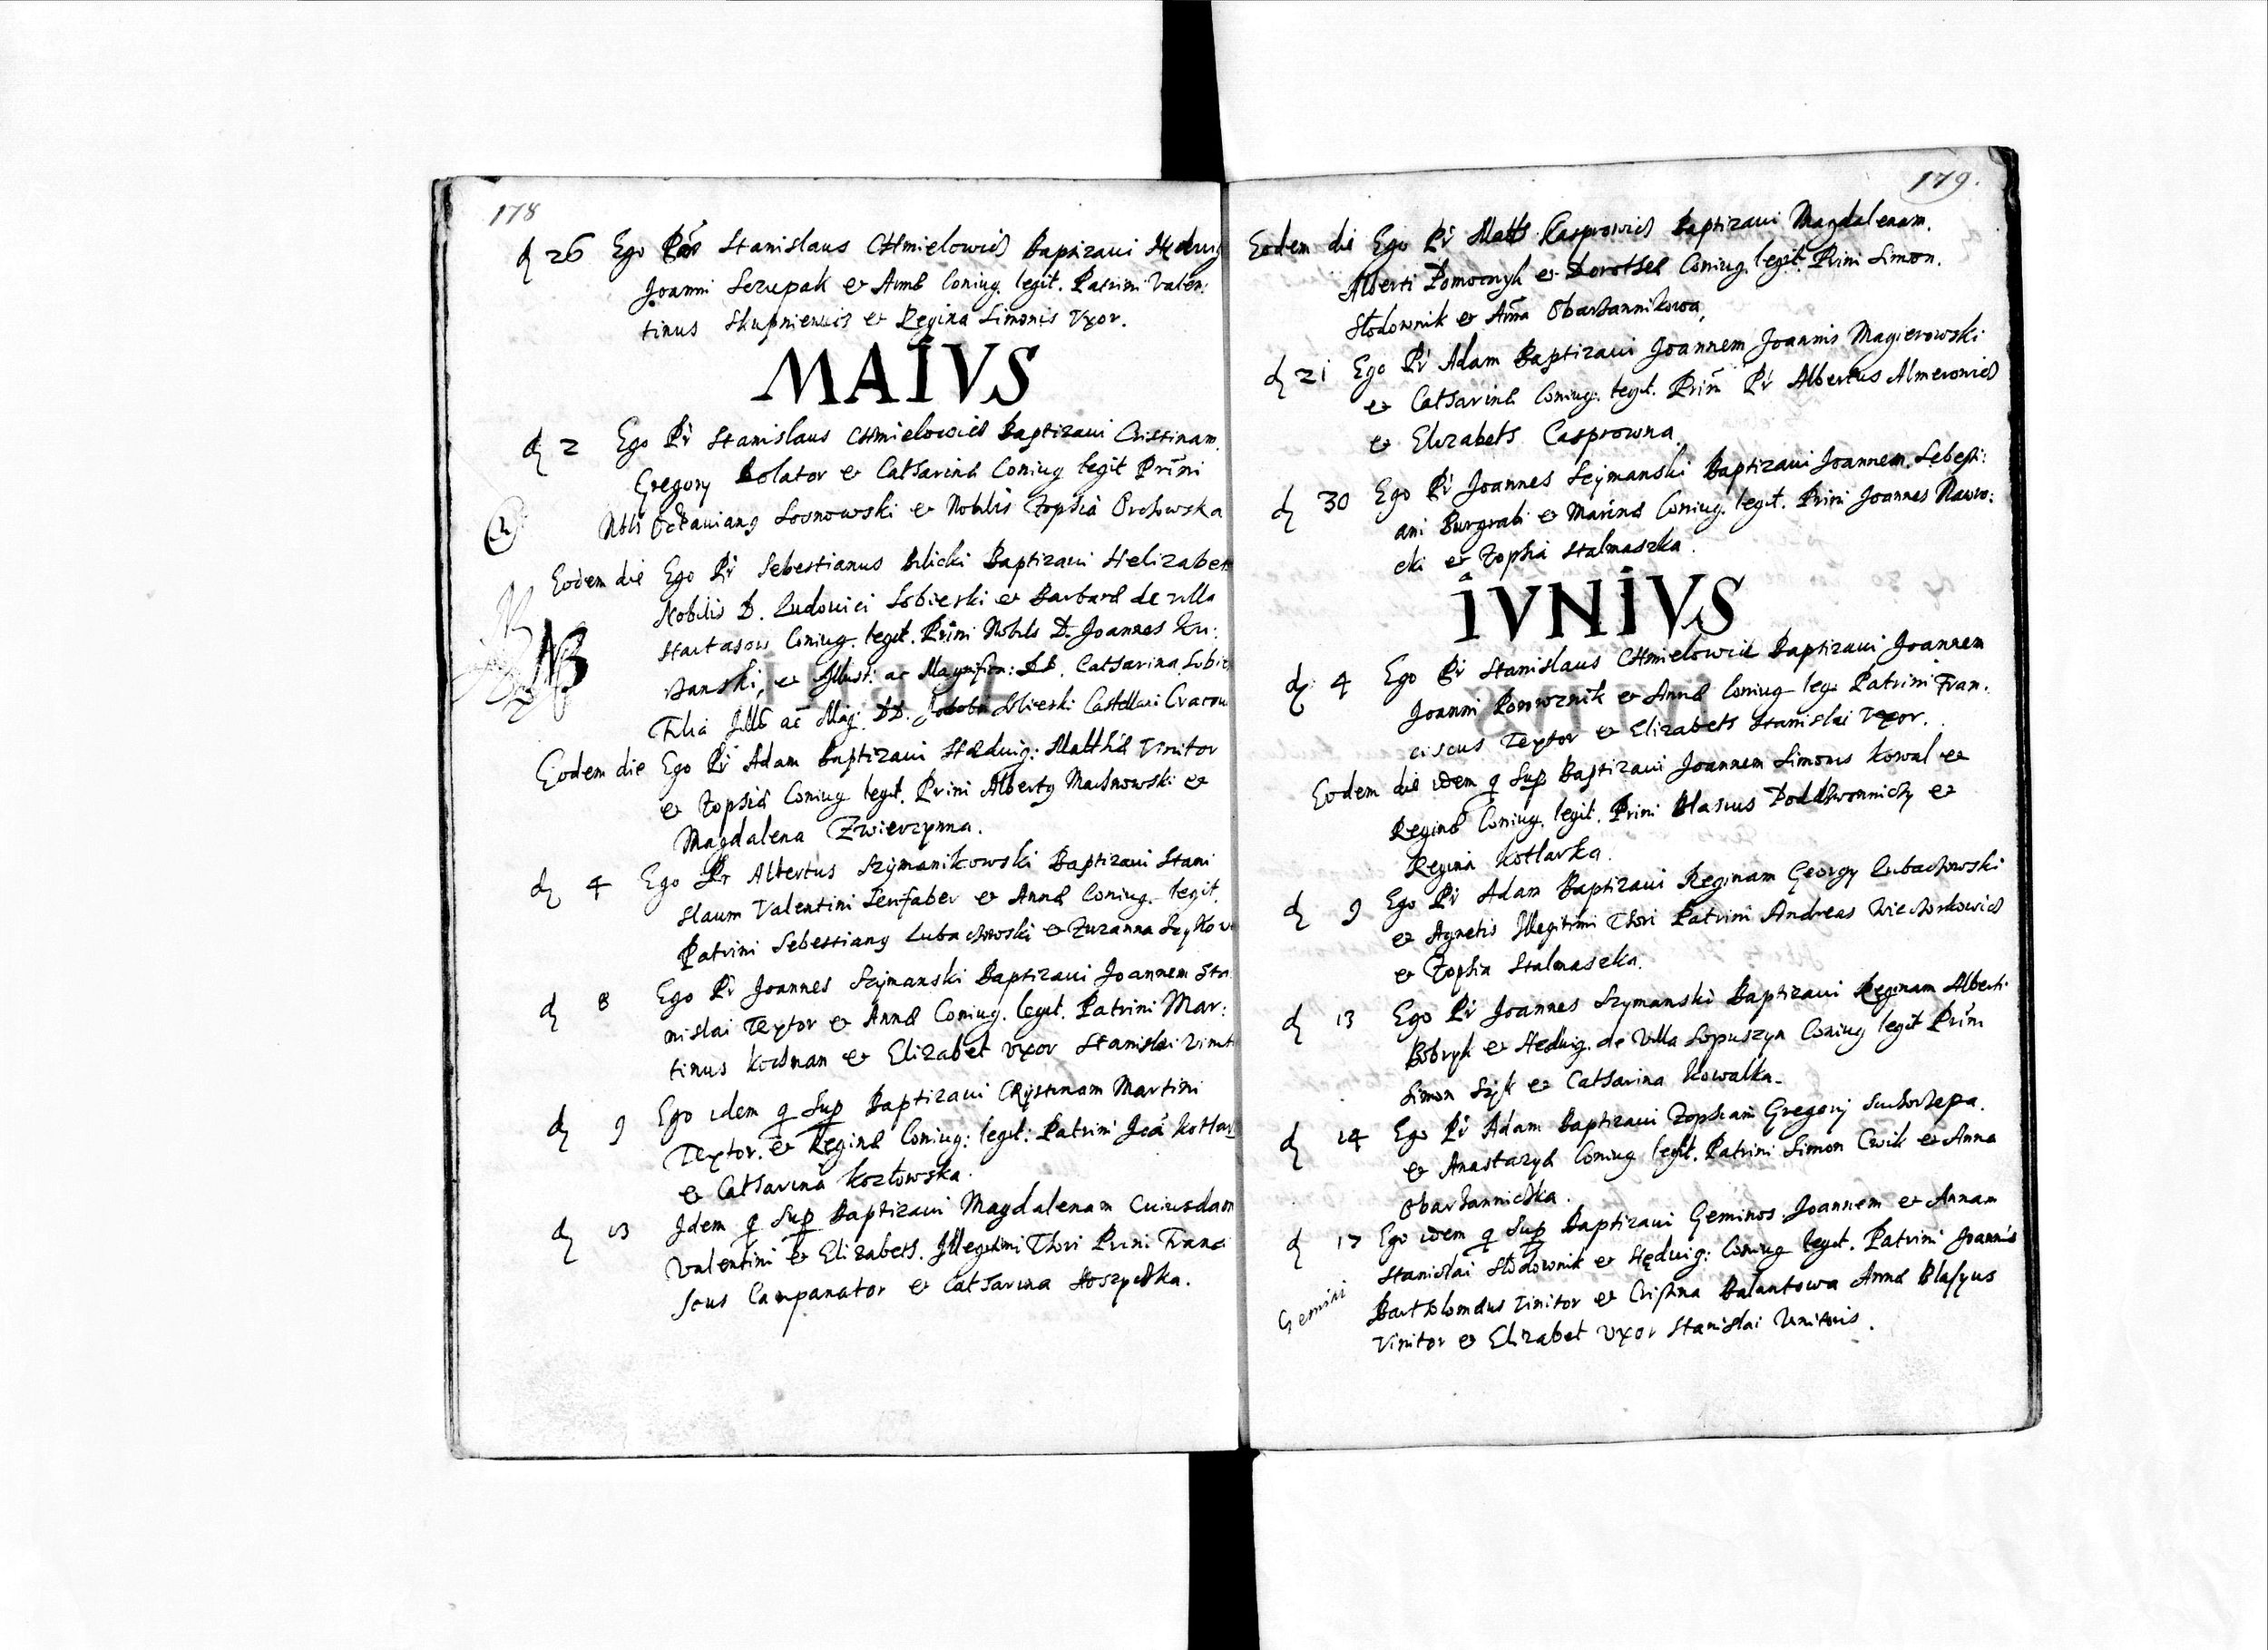 178
d 26 Ego Pr Stanislaus CHmielowicz Baptizaui Heduig
Joanni Sczupak et Annæ Coniug. legit. Patrini Valen:
tinus Skupniewicz et Regina Simonis Vxor.
MAIVS
d 2 Ego Pr Stanislaus CHmielowicz Baptizaui Cristinam
Gregory Bolator et Catharinæ Coniug legit Prini
Nbli Octauiang Sosnowski et Nobilis Zophia Orchowska
Eodem die Ego Pr Sebestianus Bilicki Baptizaui Helizabet
Nobilis D. Ludouici Sobieski et Barbaræ de villa
Coniug. legit. Prini Nobils D. Joannes Kr:
zanski, et Illust: ac Magnifica: DD. Catharina Sobie
Filia Illus ac Mag: DD. Jakobi Sobieski Castellani Cracou
NB
Eodem die Ego Pr Adam Baptizaui Hæduig: Matthiæ Vinitor
et Zophiæ Coniug legit. Prini Alberty Machnowski et
Magdalena Zwierzynna.
d 4 Ego Pr Albertus Szymanikowski Baptizaui Stani
slaum Valentini Serifaber et Annæ Coniug. legit.
Patrini Sebestiang Lubachowski et Zuzanna
d 8 Ego Pr Joannes Szymanski Baptizaui Joannem Sta
nislai Textor et Annæ Coniug. legit. Patrini Mar:
tinus Kochman et Elizabet vxor Stanislai Vinit
d 9 Ego idem q Sup Baptizaui CRystinam Martini
Textor. et Reginæ Coniug: legit: Patrini Joã Kotlar
et Catharina Kozłowska.
d 13 Idem q Sup Baptizaui Magdalenam Cuiusdam
Valentini et Elizabeth. Illegitimi Thori Prini Franci
scus Campanator et Catharina Koszyczka.
179.
Eodem die Ego Pr Matth Kasprowicz Baptizaui Magdalenam.
Alberti Pomocnyk et Dorotheæ Coniug. legit. Prini Simon.
Słodownik et Anna Obarzannikowa,
d 21 Ego Pr Adam Baptizaui Joannem Joannis Magierowski
et Catharinæ Coniug. legit. Prini Pr Albertus Almerowicz
et Elizabeth Casprowna.
d 30 Ego Pr Joannes Szymanski Baptizaui Joannem. Sebesti:
ani Burgrabi et Marinæ Coniug. legit. Prini Joannes Nawro:
cki et Zophia Stalmaszka.
IVNIVS
d: 4 Ego Pr Stanislaus CHmielowicz Baptizaui Joannem
Joanni Powroznik et Annæ Coniug leg: Patrini Fran:
ciscus Textor et Elizabeth Stanislai Vxor.
Eodem die idem q Sup Baptizaui Joannem Simonis Kowal et
Reginæ Coniug. legit. Prini Blasius Poddzwonniczy et
Regina Kotlarka.
d 9 Ego Pr Adam Baptizaui Reginam Georgy Lubachowski
et Agnetis Illegitimi Thori Patrini Andreas Wiechorkowicz
et Zophia Stalmaszka.
d 13 Ego Pr Joannes Szymanski Baptizaui Reginam Alberti
Bobryk et Hedwig. de Villa Lopuszyn Coniug legit Prini
Simon Szyk et Catharina Kowalka.
d 14 Ego Pr Adam Baptizaui Zophiam Gregorij Suchorzepa.
et Anastazyæ Coniug legit. Patrini Simon Cwik et Anna
Obarzanniczka.
d 17 Ego idem q Sup Baptizaui Geminos Joannem et Annam
Gemini
Stanislai Słodownik et Heduig: Coniug legit. Patrini Joannis
Bartholomæus Vinitor et Cristina Balantowa Annæ Blasyus
Vinitor et Elizabet vxor Stanislai Vnitoris.